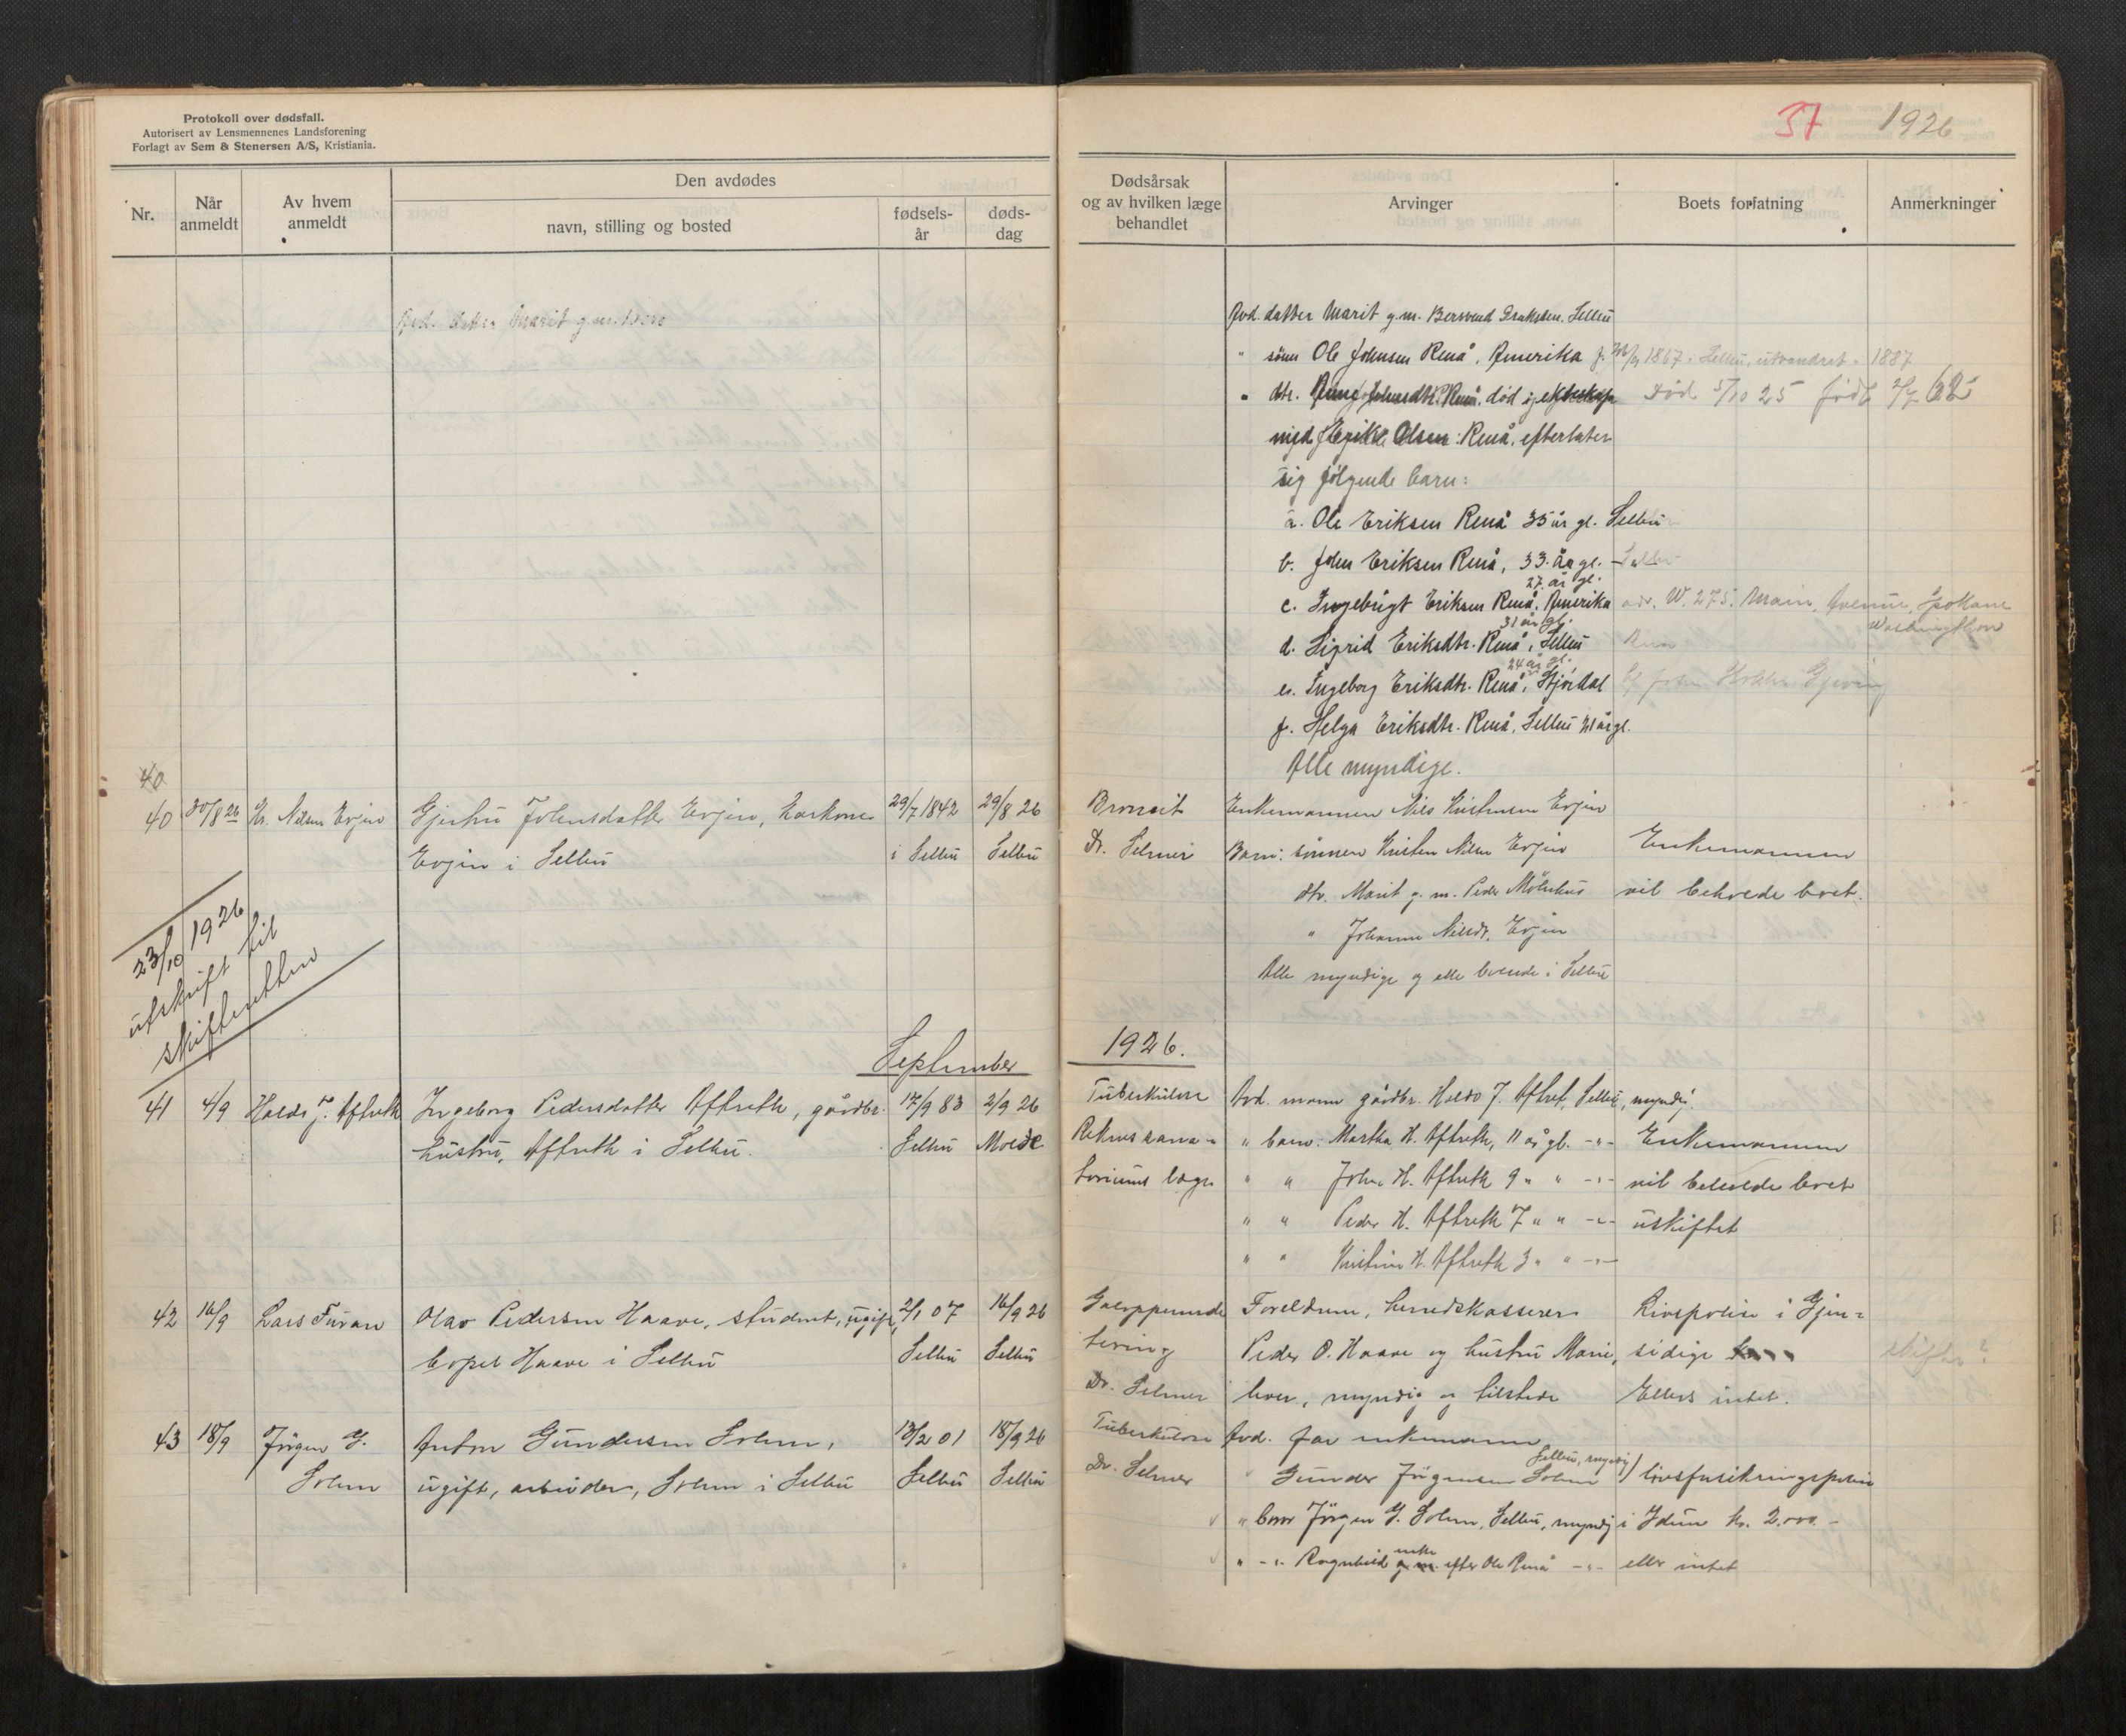 Protokoll over dødsfall.
Autorisert av Lensmennenes Landsforening
Forlagt av Sem & Stenersen A/S, Kristiania.
Nr.
Når anmeldt
Av hvem anmeldt
Den avdødes
navn, stilling og bosted
fødsels-år
døds-dag
Avd. datter Marit g.m.
40
40 30/8 26 Kr. Nilsen Evjen Gjertru Johnsdatter Evjen, karkone 29/7 1842 29/8 26
Evjen i Selbu i Selbu Selbu
23/10 1926
utskrift til
skifteretten
September
41 4/9 Haldo J. Aftreth Ingeborg Pedersdatter Aftreth, gårdbr. 17/9 83 2/9 26
hustru, Aftreth i Selbu. Selbu Molde
42 16/9 Lars Furan Olav Pedersen Haave, student, ugift, 2/1 07 16/9 26
bopel Haave i Selbu Selbu Selbu
43 18/9 Jörgen G. Anton Gundersen Solem, 13/2 01 18/9 26
Solem ugift, arbeider, Solem i Selbu Selbu Selbu
37 1926
Dødsårsak og av hvilken læge behandlet
Arvinger
Boets forfatning
Anmerkninger
Avd. datter Marit g.m. Bersvend Selbu
" sønn Ole Johnsen Renå, Amerika f. 1867 i Selbu, utvandret 1887
" dtr. Johnsdtr. Renå, død i ekteskap Død 5/10 25 født 2/7 62
med Erik Olsen Renå, efterlater
sig følgende barn:
a. Ole Eriksen Renå 35 år gl. Selbu
b. John Eriksen Renå, 33 år gl. - Selbu
27 år gl.
c. Ingebrigt Eriksen Renå, Amerika adr. W. 275. Main, Avenue, Spokane
Washington
31 år gl.
d. Sigrid Eriksdtr. Renå, Selbu
24 år gl.
e. Ingeborg Eriksdtr. Renå, Stjördal
f. Helga Eriksdtr. Renå, Selbu 21 år gl.
Alle myndige.
Bronkit Enkemannen Nils Kristensen Evjen
Dr. Selmer Barn: sønnen Kristen Nilsen Evjen Enkemannen
dtr. Marit g. m. Peder Mölnhus vil behvede boet.
" Johanna Nilsdt. Evjen
Alle myndige og alle boende i Selbu
1926.
Tuberkulose Avd. mann gårdbr. Haldo J. Aftret, Selbu, myndig.
Reknes sana- " barn: Martha H. Aftreth, 11 år gl. -"- Enkemannen
toriums læge " " John H. Aftreth 9 " " -"- vil beholde boet
" " Peder H. Aftreth 7 " " -"- uskiftet
" " Kristine H. Aftreth 3 " " -"-
Galopperende Foreldrene, herredskasserer Livspolise i Gjen-
tering Peder O. Haave og hustru Marie, sidige
Dr. Selmer lever, myndig og tilstede Ellers intet. skifte?
Tuberkulose Avd. far enkemann
Selbu, myndig
Dr. Selmer " Gunder Jörgensen Solem livsforsikringspolise
" bror Jörgen G. Solem, Selbu, myndig i Idun kr. 2.000.-
enke
" -"- Ragnhild g. m. efter Ole Renå -"- eller intet